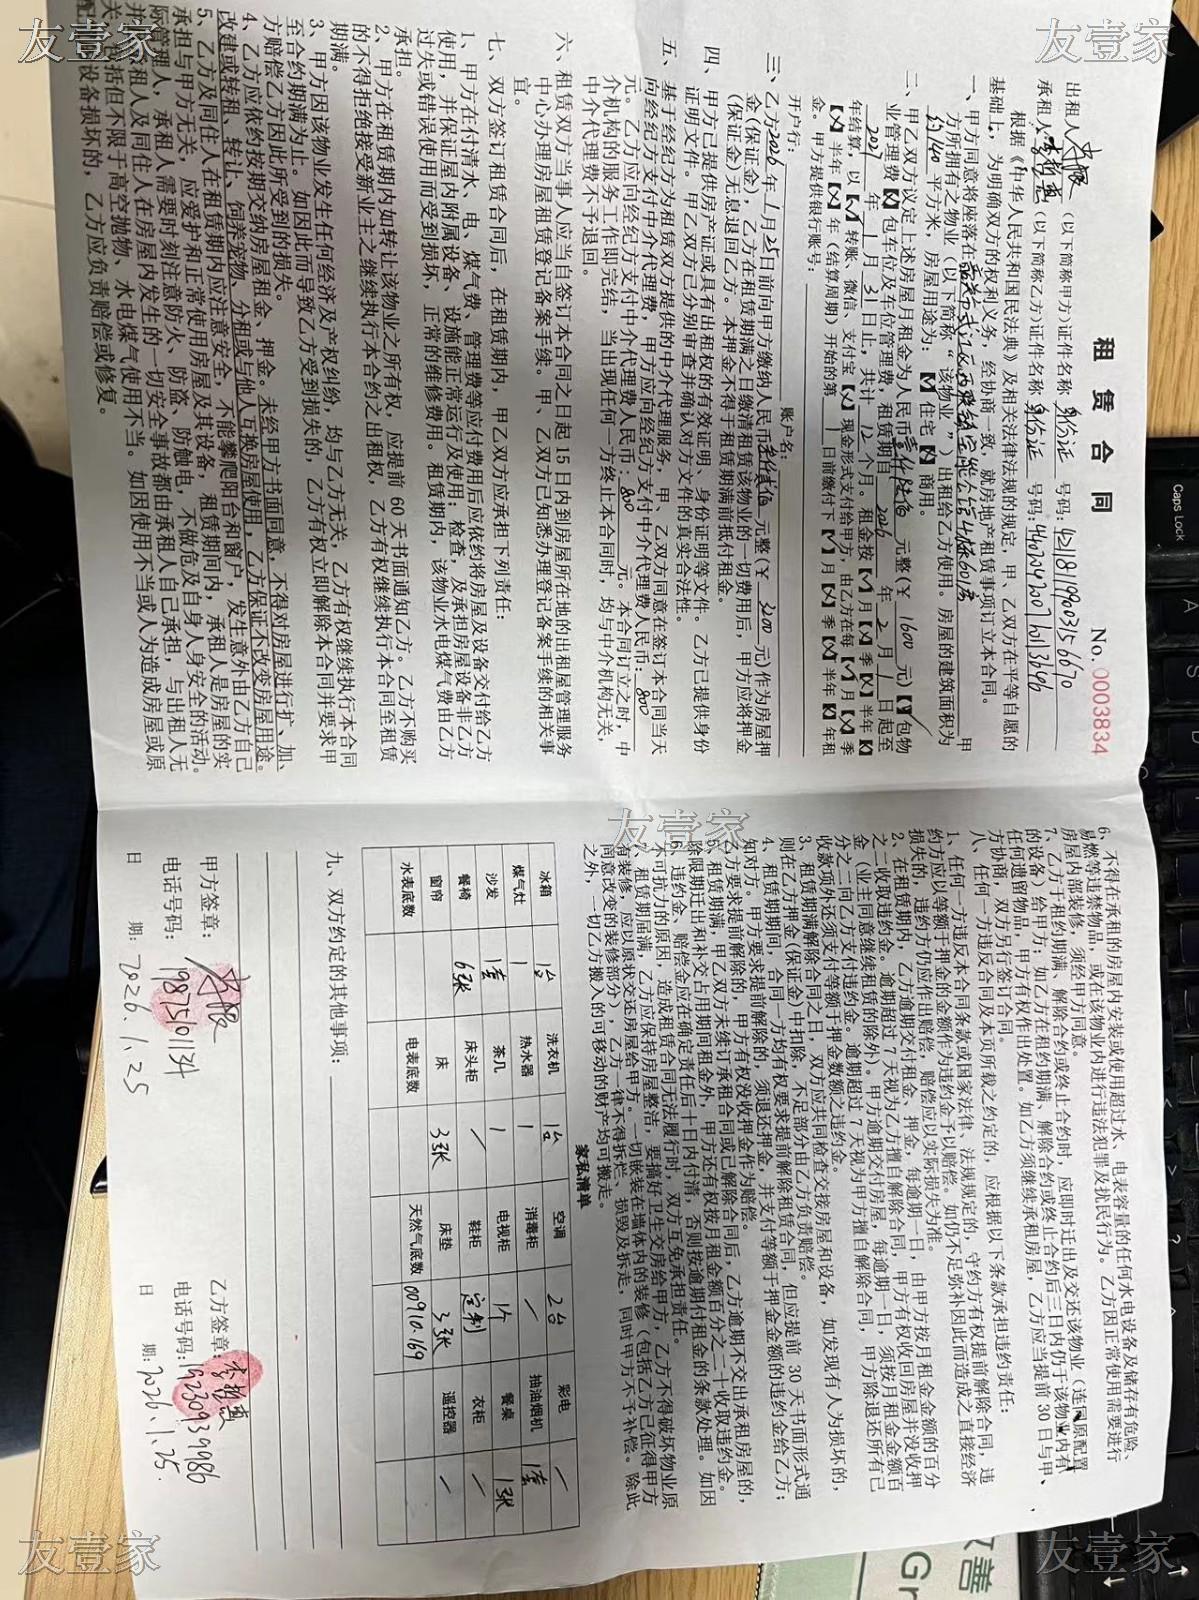 友壹家
友壹家
租赁合同
No.0003834
出租人 (以下简称甲方)证件名称 身份证 号码:
承租人 (以下简称乙方)证件名称 身份证 号码:
根据《中华人民共和国民法典》及相关法律法规的规定,甲、乙双方在平等自愿的
基础上,为明确双方的权利义务,经协商一致,就房地产租赁事项订立本合同。
一、甲方同意将座落在
方所拥有之物业(以下简称“该物业”)出租给乙方使用。房屋的建筑面积为
约140平方米,房屋用途为: 住宅 商用。
二、甲乙双方议定上述房屋月租金为人民币壹仟陆佰元整(¥ 1600 元) 包物
业管理费 包车位及车位管理费,租赁期自 2026 年 2 月 1 日起至
2027 年 1 月 31 日止,共计 12 个月。租金按 月 季 半年
年结算,以 转账、微信、支付宝 现金形式支付给甲方,由乙方在每 月 季
半年 年(结算周期)开始的第 1 日前缴付下 月 季 半年 年租
金。甲方提供银行账号:
开户行: 账户名:
三、乙方2026年1月25日前向甲方缴纳人民币叁仟贰佰元整(¥ 3200 元)作为房屋押
金(保证金),乙方在租赁期满之日缴清租赁该物业的一切费用后,甲方应将押金
(保证金)无息退回乙方。本押金不得于租赁期满前抵付租金。
四、甲方已提供房产证或具有出租权的有效证明、身份证明等文件。乙方已提供身份
证明文件。甲乙双方已分别审查并确认对方文件的真实合法性。
五、基于经纪方为租赁双方提供的中介代理服务,甲、乙双方同意在签订本合同当天
向经纪方支付中介代理费,甲方应向经纪方支付中介代理费人民币: 800
元。乙方应向经纪方支付中介代理费人民币: 800 元。本合同订立之时,中
介机构的服务工作即完结,当出现任何一方终止本合同时,均与中介机构无关,
中介代理费不予退回。
六、租赁双方当事人应当自签订本合同之日起 15 日内到房屋所在地的出租屋管理服务
中心办理房屋租赁登记备案手续。甲、乙双方已知悉办理登记备案手续的相关事
宜。
七、双方签订租赁合同后,在租赁期内,甲乙双方应承担下列责任:
1、甲方在付清水、电、煤气费、管理费等应付费用后应依约将房屋及设备交付给乙方
使用,并保证屋内附属设备、设施能正常运行及使用;检查,及承担房屋设备非乙方
过失或错误使用而受到损坏,正常的维修费用。租赁期内,该物业水电煤气费由乙方
承担。
2、甲方在租赁期内如转让该物业之所有权,应提前 60 天书面通知乙方。乙方不购买
的不得拒绝接受新业主之继续执行本合约之出租权,乙方有权继续执行本合同至租赁
期满。
3、甲方因该物业发生任何经济及产权纠纷,均与乙方无关,乙方有权继续执行本合同
至合约期满为止。如因此而导致乙方受到损失的,乙方有权立即解除本合同并要求甲
方赔偿乙方因此所受到的损失。
4、乙方应依约按期交纳房屋租金、押金。未经甲方书面同意,不得对房屋进行扩、加、
改建或转租、转让、饲养宠物、分租或与他人互换房屋使用,乙方保证不改变房屋用途。
5、乙方及同住人在租赁期内应注意安全,不能攀爬阳台和窗户,发生意外由乙方自己
承担与甲方无关,应爱护和正常使用房屋及其设备,租赁期间内,承租人是房屋的实
际管理人,承租人需要时刻注意防火、防盗、防触电,不做危及自身人身安全的活动。
承租人及同住人在房屋内发生的一切安全事故都由承租人自己承担,与出租人无
关,包括但不限于高空抛物、水电煤气使用不当。如因使用不当或人为造成房屋或原
配设备损坏的,乙方应负责赔偿或修复。
友壹家
6、不得在承租的房屋内安装或使用超过水、电表容量的任何水电设备及储存有危险、
易燃等违禁物品,或在该物业内进行违法犯罪及扰民行为。乙方因正常使用需要进行
房屋内部装修,须经甲方同意。
7、乙方于租约期满、解除合约或终止合约时,应即时迁出及交还该物业(连同原配置
的设备)给甲方;如乙方在租约期满、解除合约或终止合约后三日内仍于该物业内有
任何遗留物品,甲方有权作出处置。如乙方须继续承租房屋,乙方应当提前 30 日与甲
方协商,双方另行签订合同。
八、任何一方违反合同及本页所载之约定的,应根据以下条款承担违约责任:
1、任何一方违反本合同条款或国家法律、法规规定的,守约方有权提前解除合同,违
约方应以等额于押金的金额作为违约金予以赔偿。如仍不足弥补因此而造成之直接经济
损失的,违约方仍应作出赔偿,赔偿应以实际损失为准。
2、在租赁期内,乙方逾期交付租金、押金,每逾期一日,由甲方按月租金金额的百分
之二收取违约金。逾期超过 7 天视为乙方擅自解除合同,甲方有权收回房屋并没收押
金(业主同意继续租赁的除外)。甲方逾期交付房屋,每逾期一日,须按月租金金额百
分之二向乙方支付违约金。逾期超过 7 天视为甲方擅自解除合同,甲方除退还所有已
收款项外还须支付等额于押金数额之违约金。
3、租赁期满解除合同之日,双方应共同检查交接房屋和设备,如发现有人为损坏的,
则在乙方押金(保证金)中扣除,不足部分由乙方负责赔偿。
4、租赁期期间,合同一方均有权要求提前解除租赁合同,但应提前 30 天书面形式通
知对方。甲方要求提前解除的,须退还押金,并支付等额于押金金额的违约金给乙方;
乙方要求提前解除的,甲方有权没收押金作为赔偿。
5、租赁期满,甲乙双方未续订承租合同或已解除合同后,乙方逾期不交出承租房屋的,
除限期迁出和补交占用期间租金外,甲方还有权按月租金额百分之二十收取违约金。
6、违约金、赔偿金应在确定责任后十日内付清,否则按逾期付租金的条款处理。如因
不可抗力的原因,造成租赁合同无法履行时,双方互免承担责任。
7、租赁期届满,乙方应保持房屋整洁,要搞好卫生交房给甲方,乙方不得破坏物业原
有装修,应以原状交还房屋给甲方。一切嵌装在墙体内的装修(包括乙方已征得甲方
同意改变的装修部分),乙方一律不得拆烂、损毁及拆走,同时甲方不予补偿。除此
之外,一切乙方搬入的可移动的财产均可搬走。
家私清单
冰箱 1台 洗衣机 1台 空调 2台 彩电 /
煤气灶 1 热水器 1 消毒柜 / 抽油烟机 1套
沙发 1套 茶几 1 电视柜 1片 餐桌 1张
餐椅 6张 床头柜 / 鞋柜 定制 衣柜 /
窗帘 床 3张 床垫 3张 遥控器 /
水表底数 电表底数 天然气底数 00910.169
九、双方约定的其他事项:
甲方签章: 乙方签章:
电话号码: 1987501134 电话号码: 1923093986
日 期: 2026.1.25 日 期: 2026.1.25.
Caps Lock
A
善
Gr
友壹家
友壹家